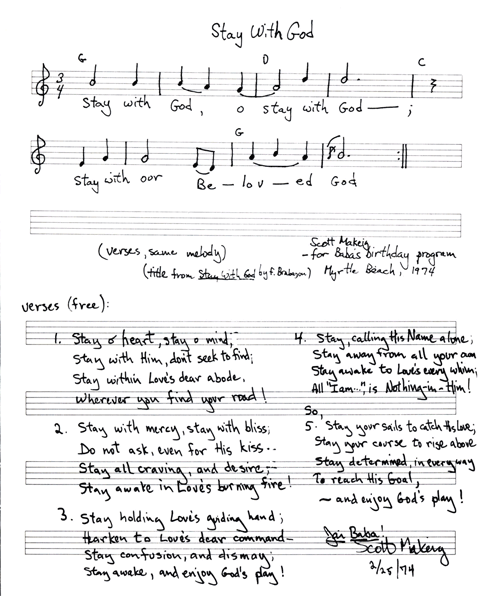 Stay With God
G D C
3/4
Stay with God, o stay with God — ;
G
Stay with our Be – lov – ed God
(verses, same melody)
(title from Stay With God by F. Brabazon)
Scott Makeig
– for Baba's birthday program
Myrtle Beach, 1974
verses (free):
1. Stay o heart, stay o mind;
Stay with Him, don't seek to find;
Stay within Love's dear abode,
Wherever you find your road!
2. Stay with mercy, stay with bliss;
Do not ask, even for His kiss--
Stay all craving, and desire;-
Stay awake in Love's burning fire!
3. Stay holding Love's guiding hand;
Harken to Love's dear command—
Stay confusion, and dismay;
Stay awake, and enjoy God's play!
4. Stay, calling His Name alone;
Stay away from all your own
Stay awake to Love's every whim;
All "I am..." is Nothing-in-Him!
So,
5. Stay your sails to catch His love;
Stay your course to rise above
Stay determined, in every way
To reach His Goal,
~ and enjoy God's play!
Jai Baba!
Scott Makeig
2/25/74